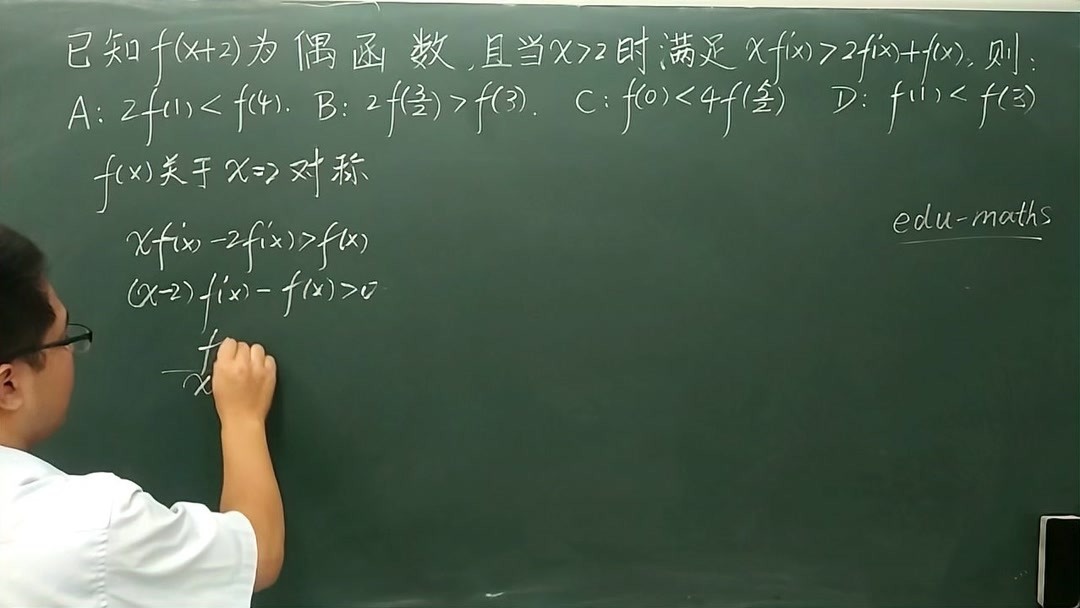 已知f(x+2)为偶函数,且当x>2时满足xf'(x)>2f'(x)+f(x).则:
A: 2f(1)<f(4). B: 2f(3/2)>f(3). C: f(0)<4f(5/2) D: f(1)<f(3)
f(x)关于x=2对称
edu-maths
xf'(x)-2f'(x)>f(x)
(x-2)f'(x)-f(x)>0
f
x